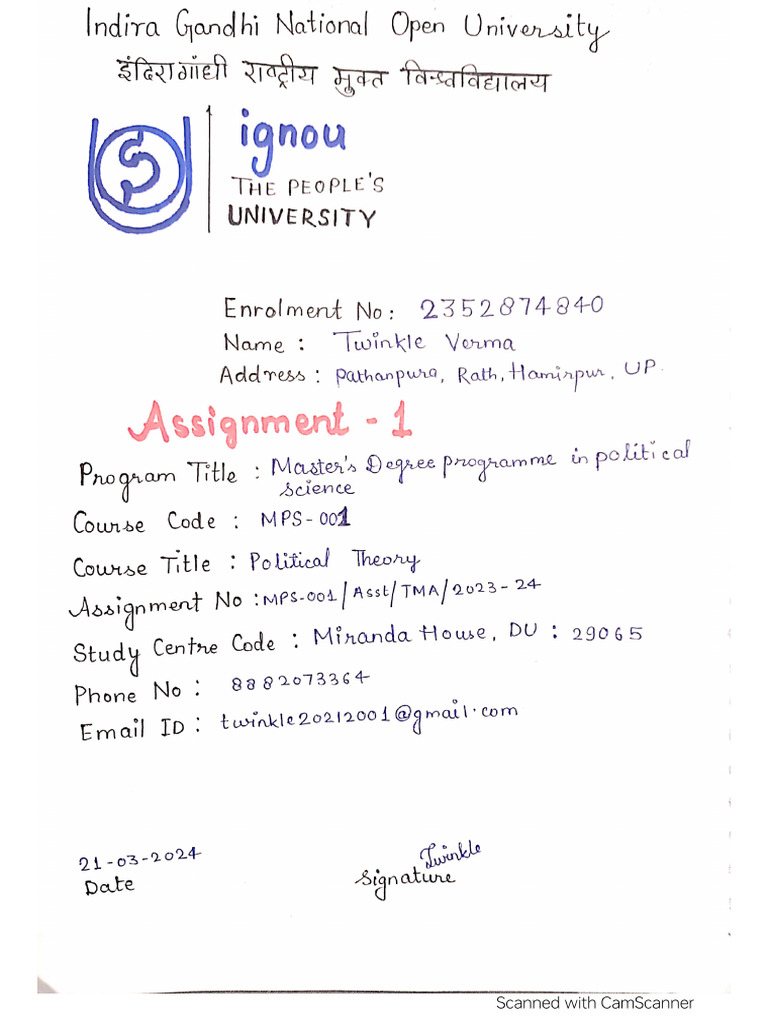 Indira Gandhi National Open University
इंदिरागांधी राष्ट्रीय मुक्त विश्वविद्यालय
ignou
THE PEOPLE'S
UNIVERSITY
Enrolment No: 2352874840
Name : Twinkle Verma
Address : Pathanpura, Rath, Hamirpur, UP.
Assignment - 1
Program Title : Master's Degree programme in political
science
Course Code : MPS-001
Course Title : Political Theory
Assignment No : MPS-001/Asst/TMA/2023-24
Study Centre Code : Miranda House, DU : 29065
Phone No : 8882073364
Email ID : twinkle20212001@gmail.com
21-03-2024 Twinkle
Date Signature
Scanned with CamScanner